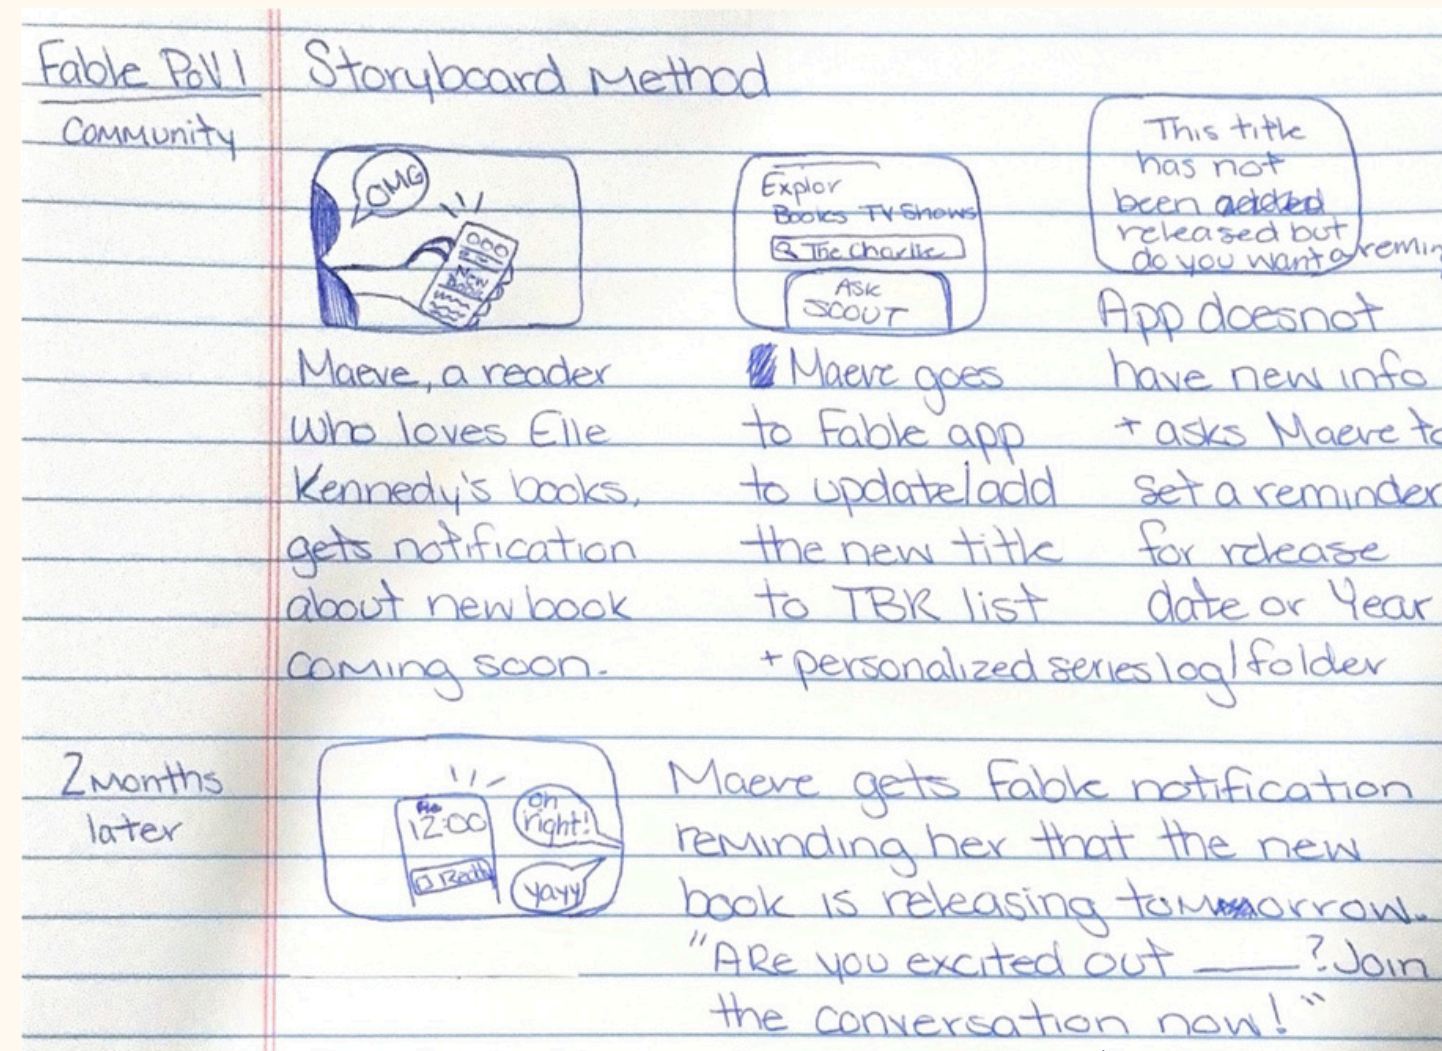 Fable PoV 1
Community
Storyboard Method
OMG
New
Book
Maeve, a reader
who loves Elle
Kennedy's books,
gets notification
about new book
coming soon.
Explor
Books TV Shows
The Charlie
ASK
SCOUT
Maeve goes
to Fable app
to update/add
the new title
to TBR list
+ personalized series log/folder
This title
has not
been added
released but
do you want a remin
App does not
have new info
+ asks Maeve to
set a reminder
for release
date or Year
2 Months
later
12:00
oh
right!
yayy
Maeve gets Fable notification
reminding her that the new
book is releasing tomorrow.
"ARe you excited out ____? Join
the conversation now!"